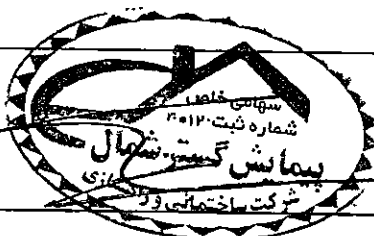 سهامی خاص
شماره ثبت ۴۰۱۲۰
پیمایش گستر شمال
شرکت ساختمانی و